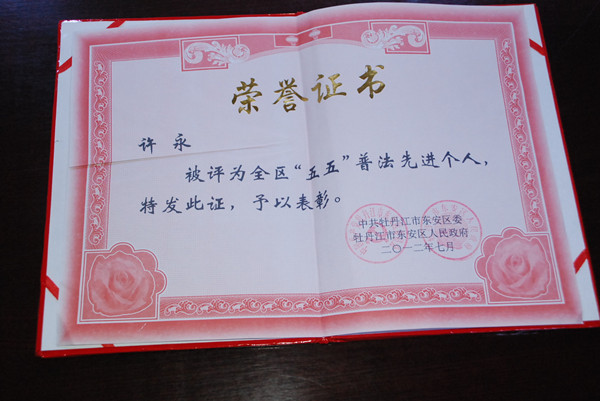 荣誉证书
许永
被评为全区“五五”普法先进个人，
特发此证，予以表彰。
中共牡丹江市东安区委
牡丹江市东安区人民政府
二〇一二年七月